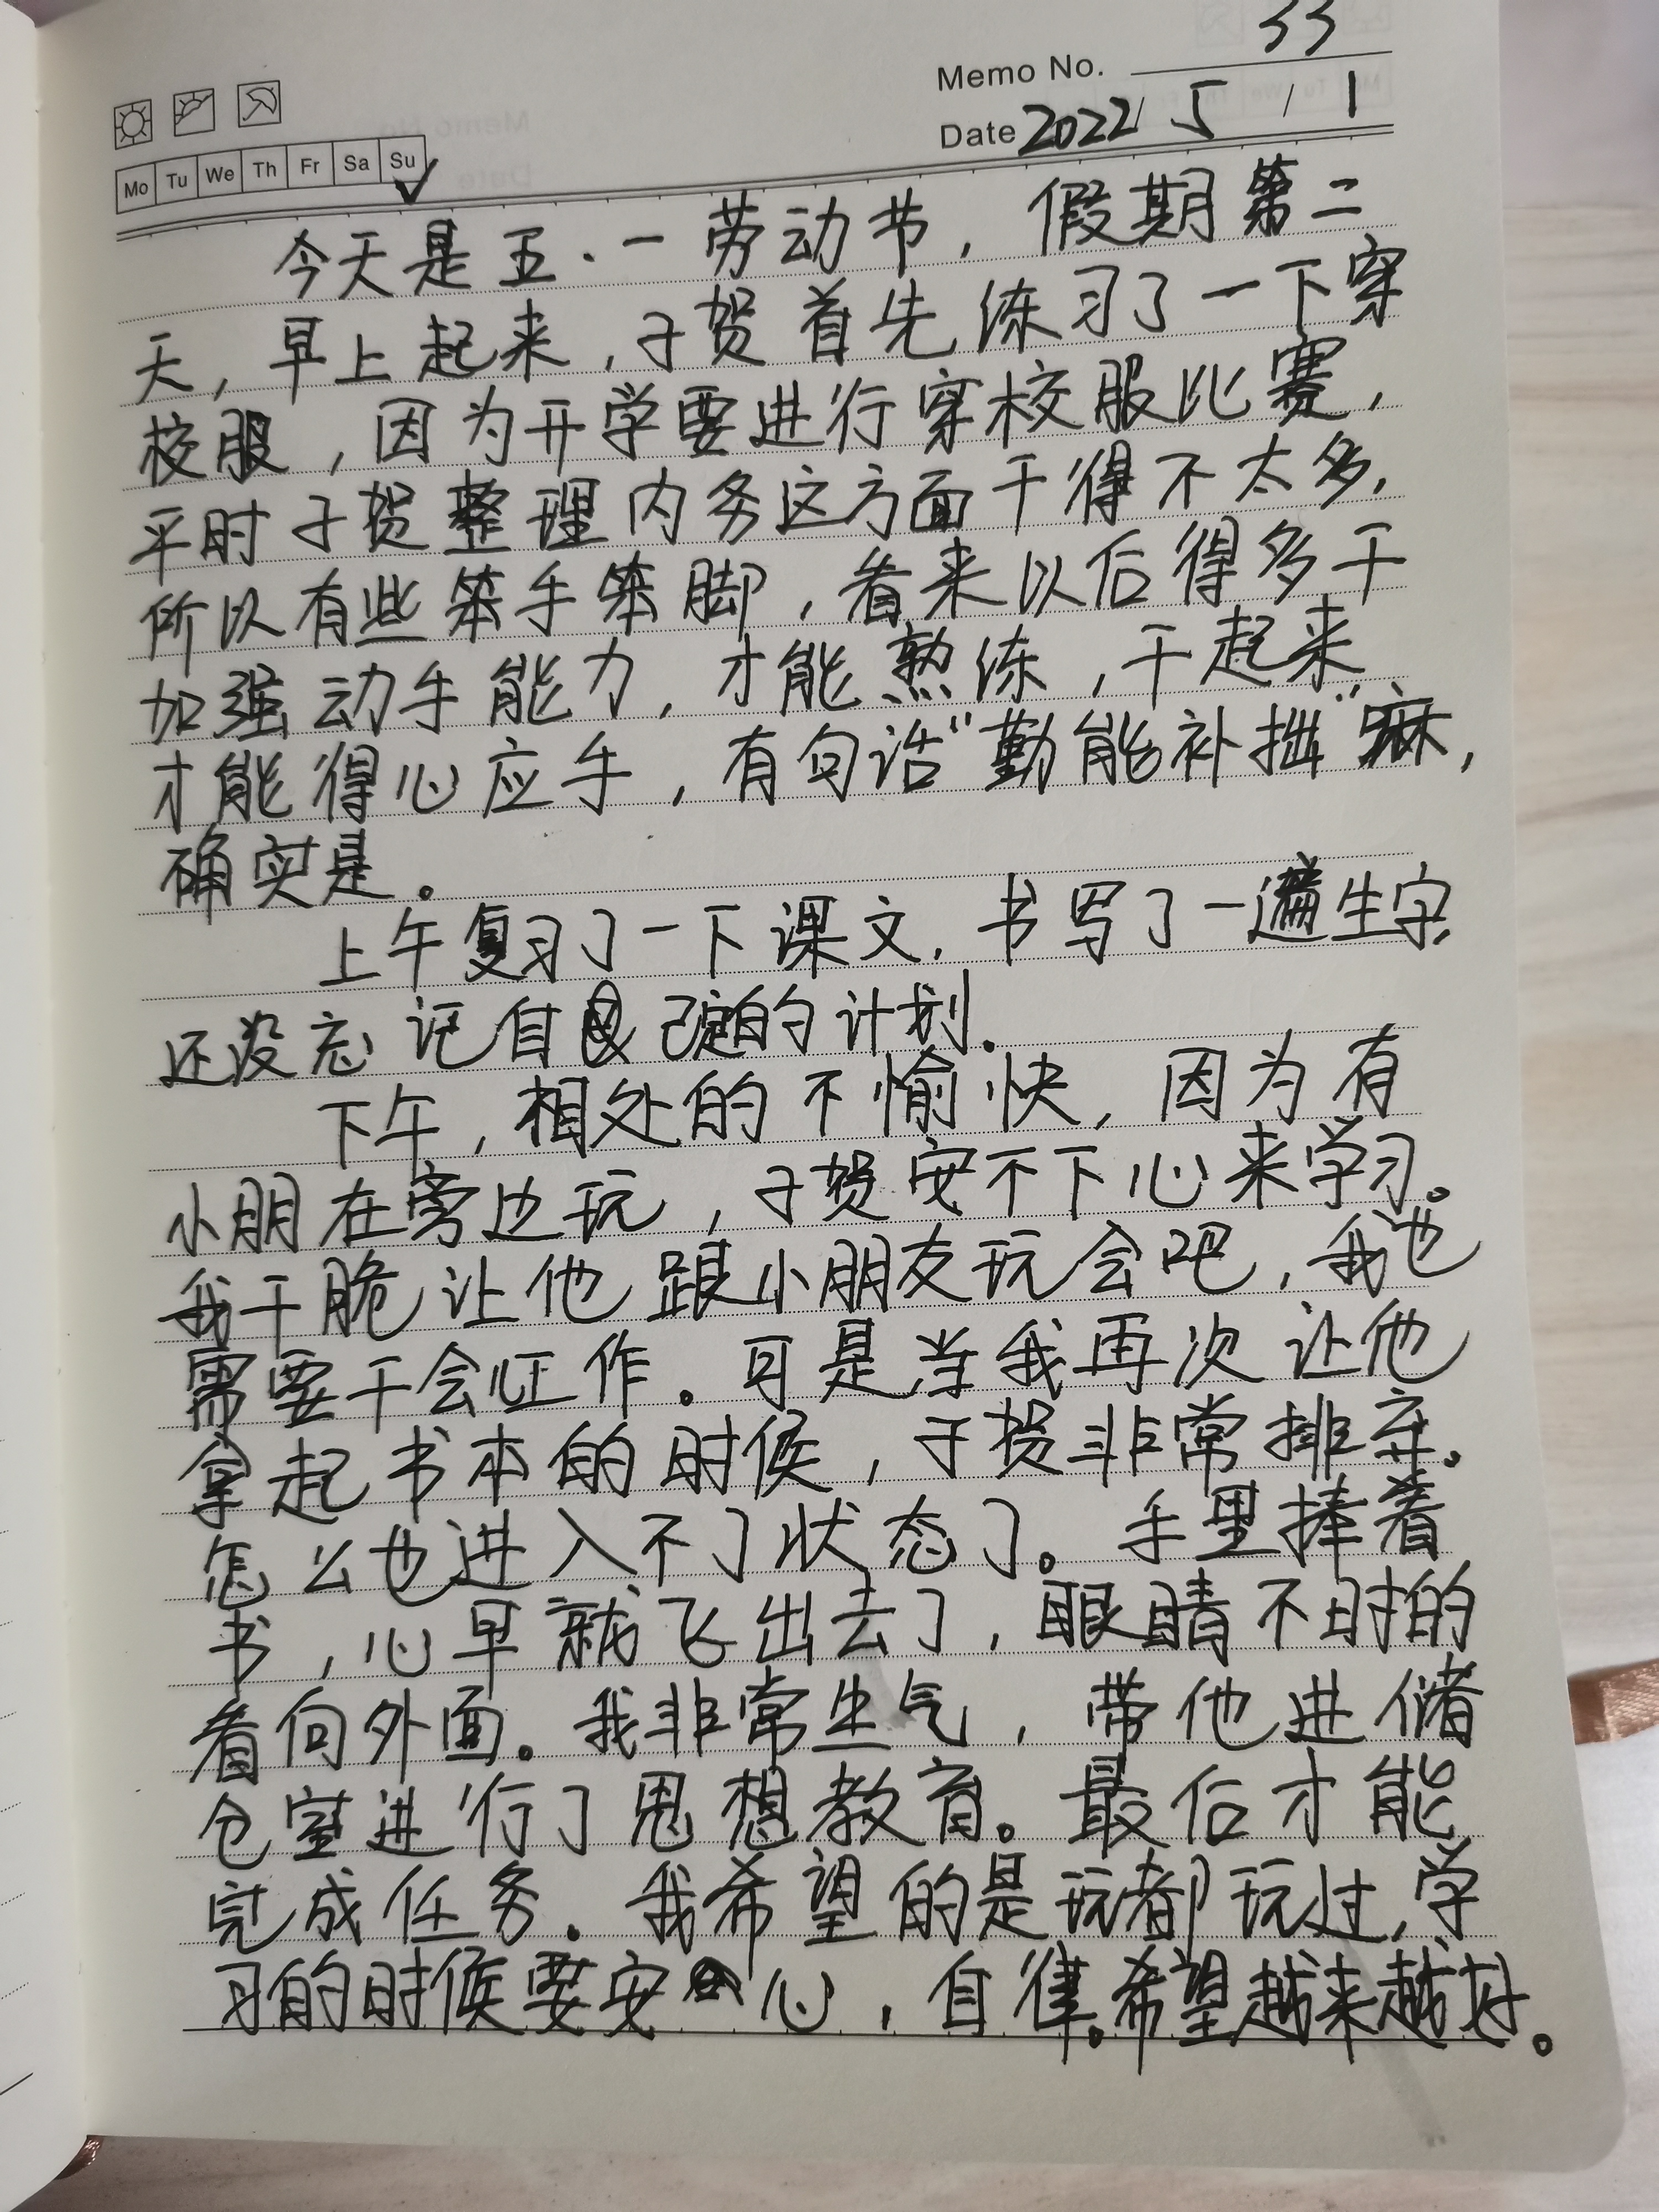 Memo No. 33
Mo Tu We Th Fr Sa Su
Date 2022 / 5 / 1
今天是五·一劳动节，假期第二
天，早上起来，子贺首先练习了一下穿
校服，因为开学要进行穿校服比赛，
平时子贺整理内务这方面干得不太多，
所以有些笨手笨脚，看来以后得多干
加强动手能力，才能熟练，干起来
才能得心应手，有句话“勤能补拙”嘛，
确实是。
上午复习了一下课文，书写了一遍生字，
还没忘记自己定的计划。
下午，相处的不愉快，因为有
小朋在旁边玩，子贺安不下心来学习。
我干脆让他跟小朋友玩会吧，我也
需要干会工作。可是当我再次让他
拿起书本的时候，子贺非常排弃。
怎么也进入不了状态了。手里捧着
书，心早就飞出去了，眼睛不时的
看向外面。我非常生气，带他进储
仓室进行了思想教育。最后才能
完成任务。我希望的是玩都玩过，学
习的时候要安心，自律。希望越来越好。